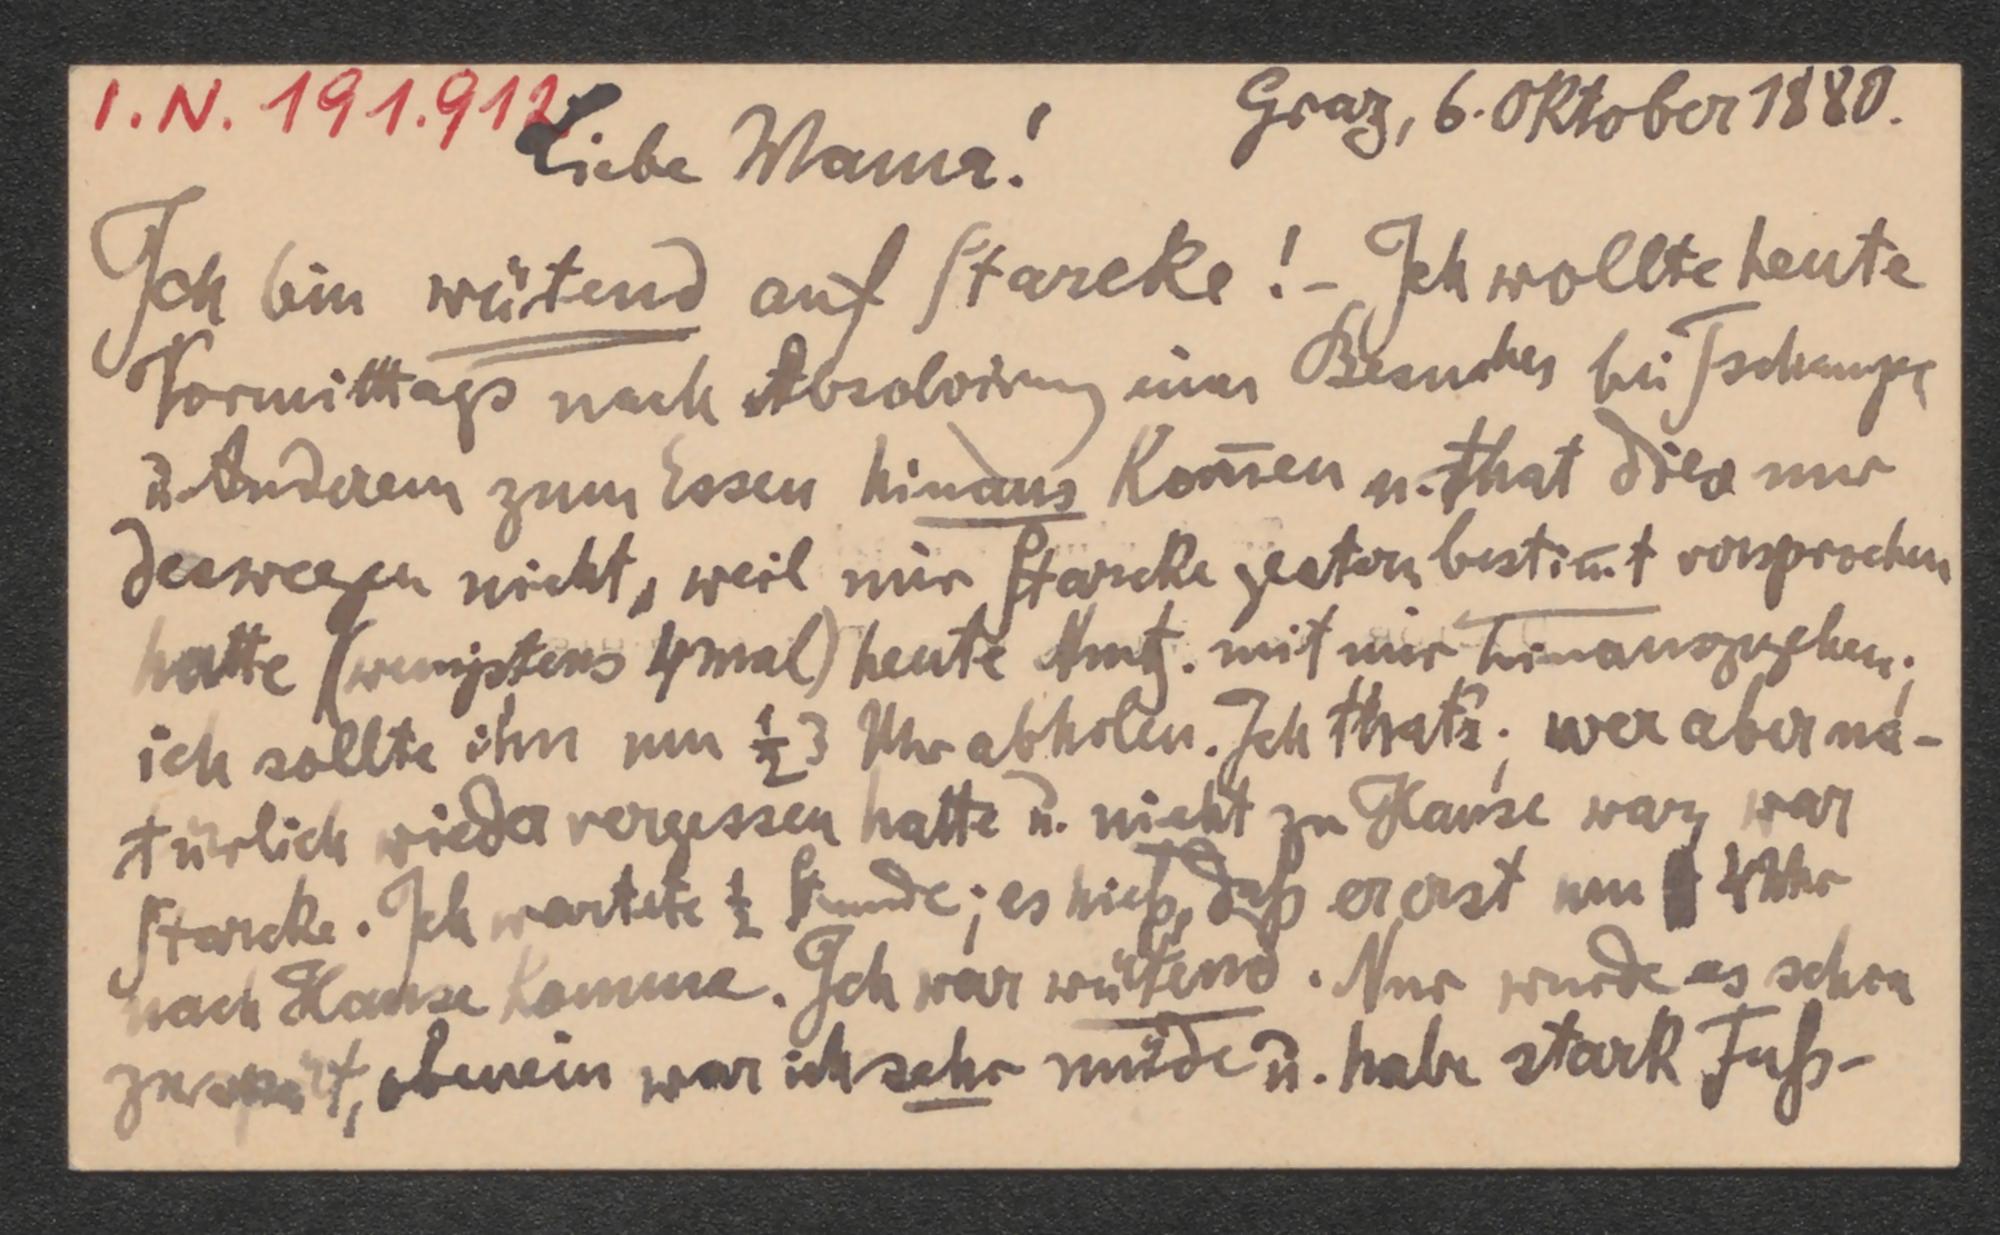 I.N. 191.912
Graz, 6. Oktober 1880.
Liebe Mama!
Ich bin wütend auf Starcke! – Ich wollte heute
Vormittags nach Absolvirung eines Besuches bei
u. Anderem zum Essen hinaus kom̅en u. that dies nur
deswegen nicht, weil mir Starcke gestern bestim̅t versprochen
hatte (wenigstens 4mal) heute Nmtg. mit mir hinauszugehen;
ich sollte ihn um ½3 Uhr abholen. Ich that's; wer aber na-
türlich wieder vergessen hatte u. nicht zu Hause war, war
Starcke. Ich wartete ½ Stunde; es hieß, daß er erst um 4 Uhr
nach Hause komme. Ich war wütend. Nur wurde es schon
zu spät, obenein war ich sehr müde u. habe stark Fuß-